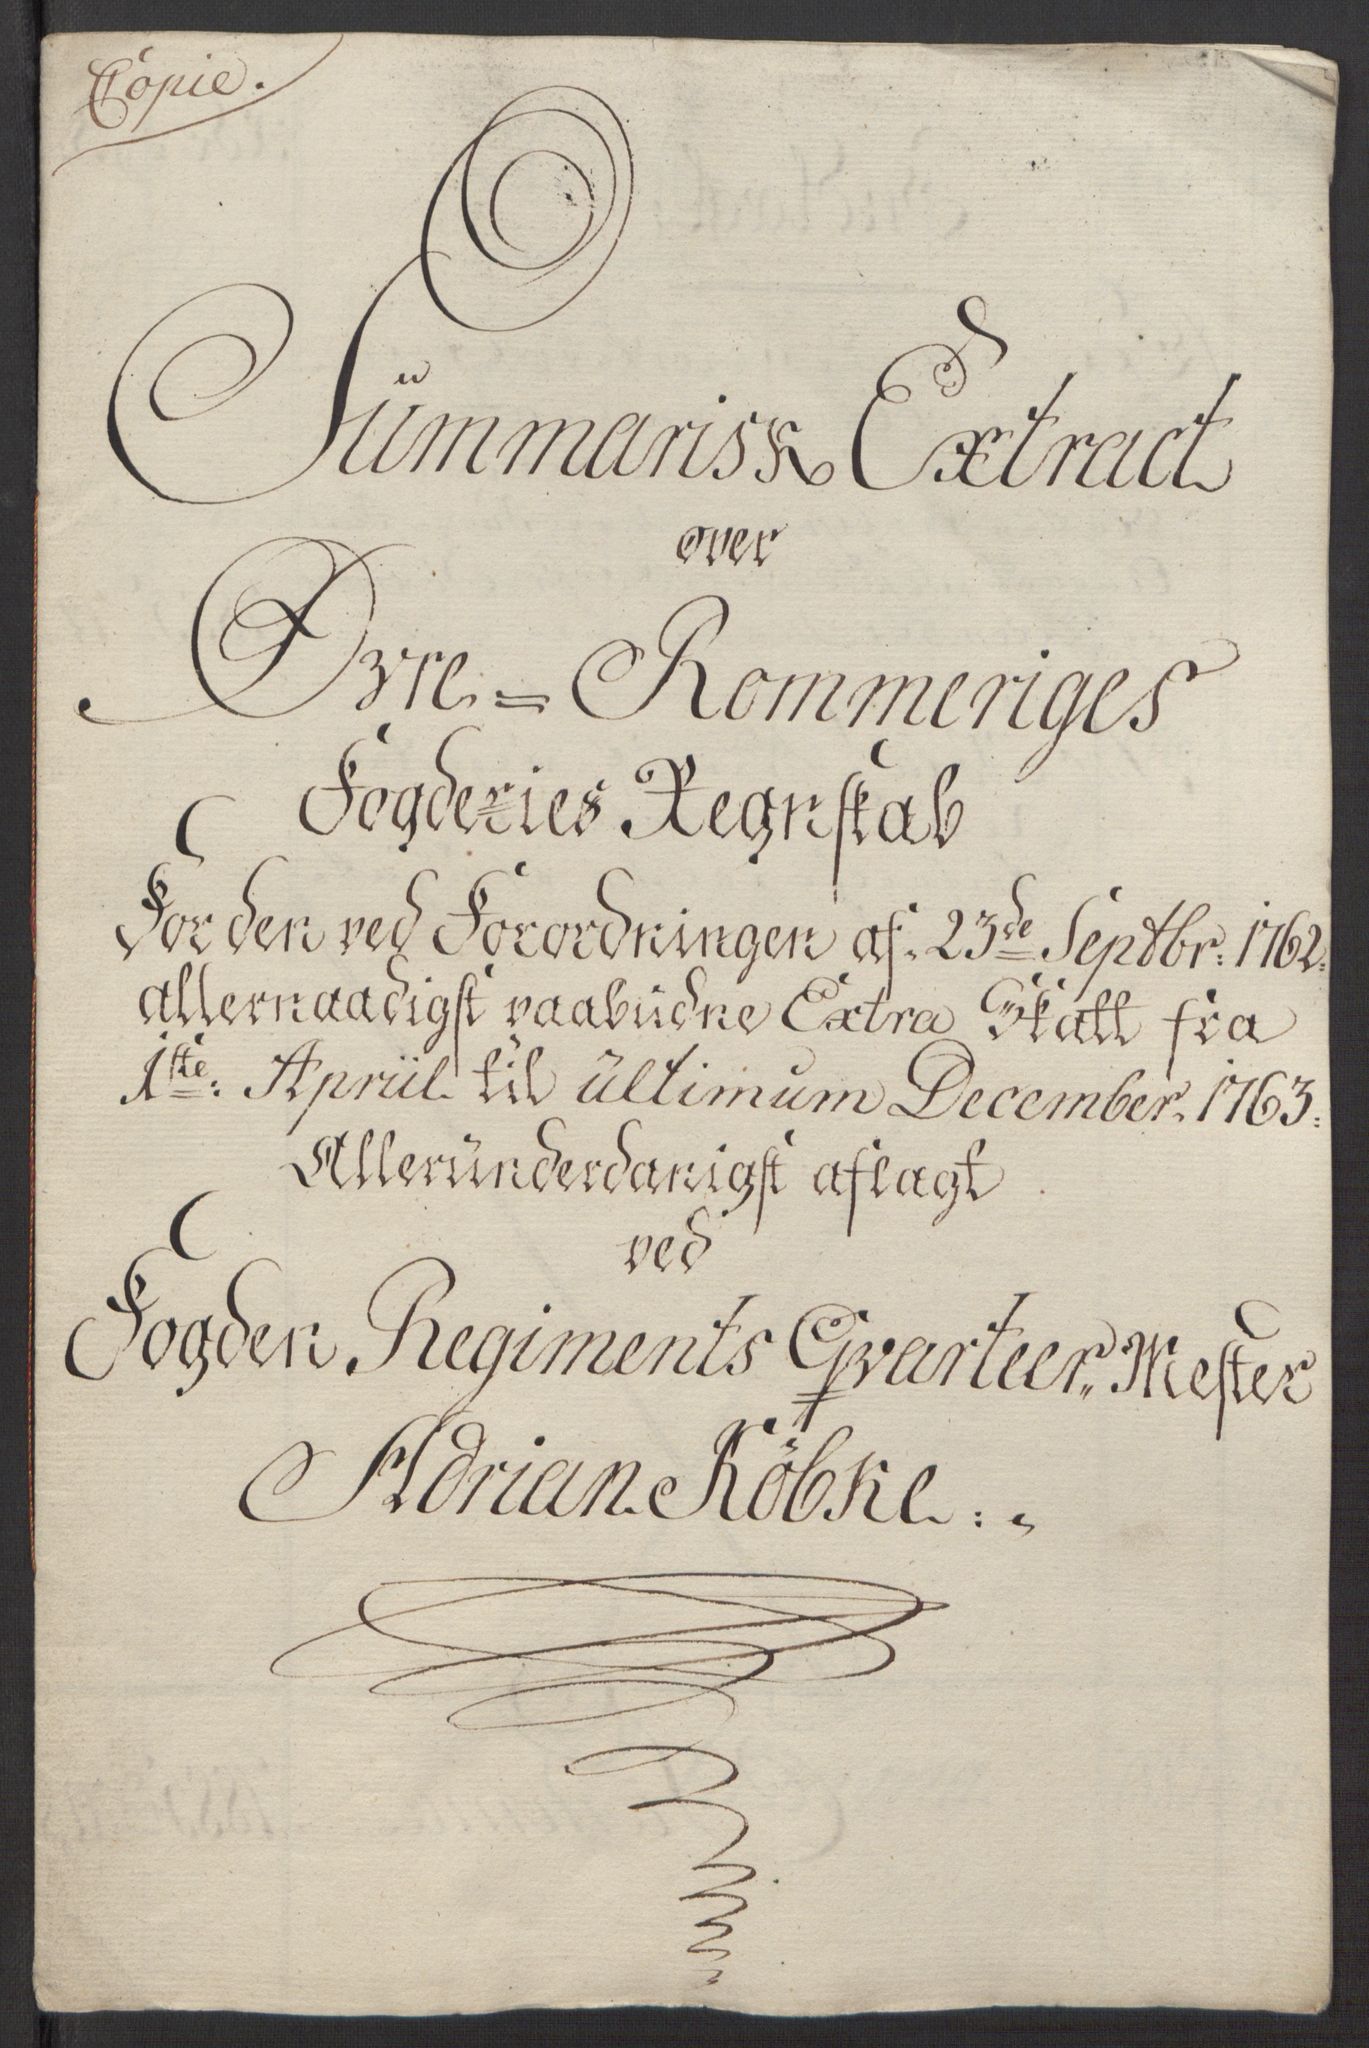 Copie.
Sümmarisk Extract
over
Øvre = Rommeriges
Fogderies Regnskab
For den ved Forordningen af 23de Septbr: 1762.
allernaadigst paabüdne Extra Skatt fra
1ste: Apriil til ültimum December 1763.
Alleründerdanigst aflagt
ved
Fogden Regiments Qvarteer Mester
Adrian Köbke